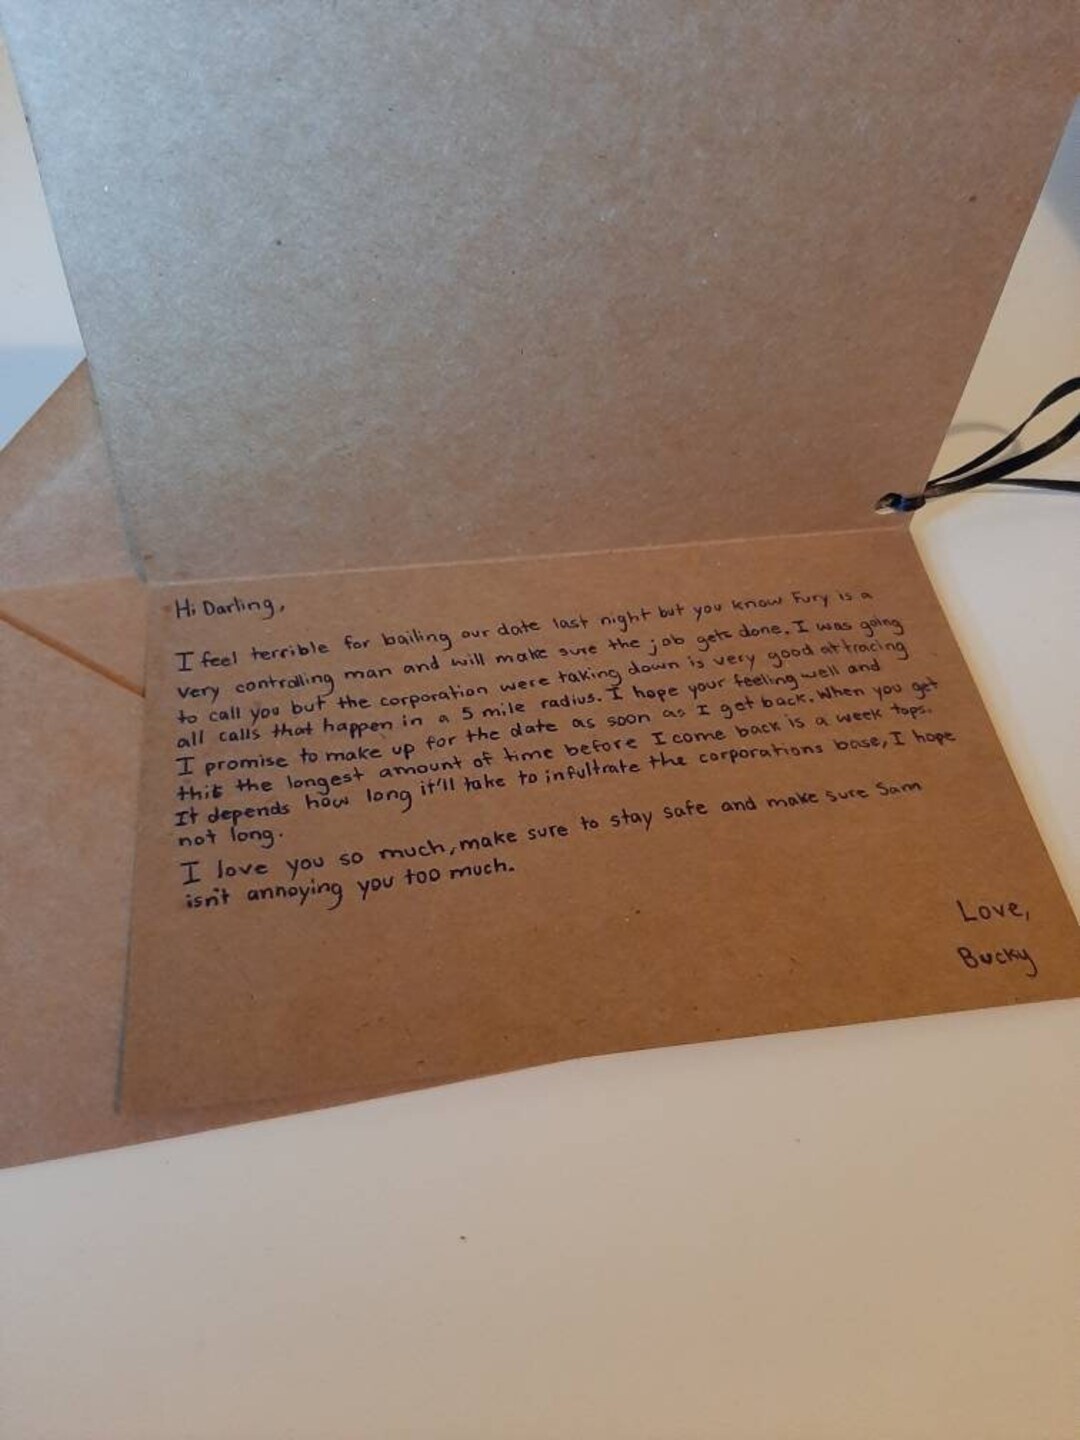 Hi Darling,
I feel terrible for bailing our date last night but you know Fury is a
very controlling man and will make sure the job gets done. I was going
to call you but the corporation were taking down is very good at tracing
all calls that happen in a 5 mile radius. I hope your feeling well and
I promise to make up for the date as soon as I get back. When you get
this the longest amount of time before I come back is a week tops.
It depends how long it'll take to infultrate the corporations base, I hope
not long.
I love you so much, make sure to stay safe and make sure Sam
isn't annoying you too much.
Love,
Bucky